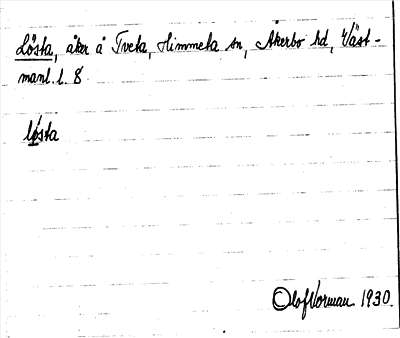 Lösta, åker å Tveta, Himmeta sn, Åkerbo hd, Väst-
manl. l. 8
lösta
Olof Norman 1930.